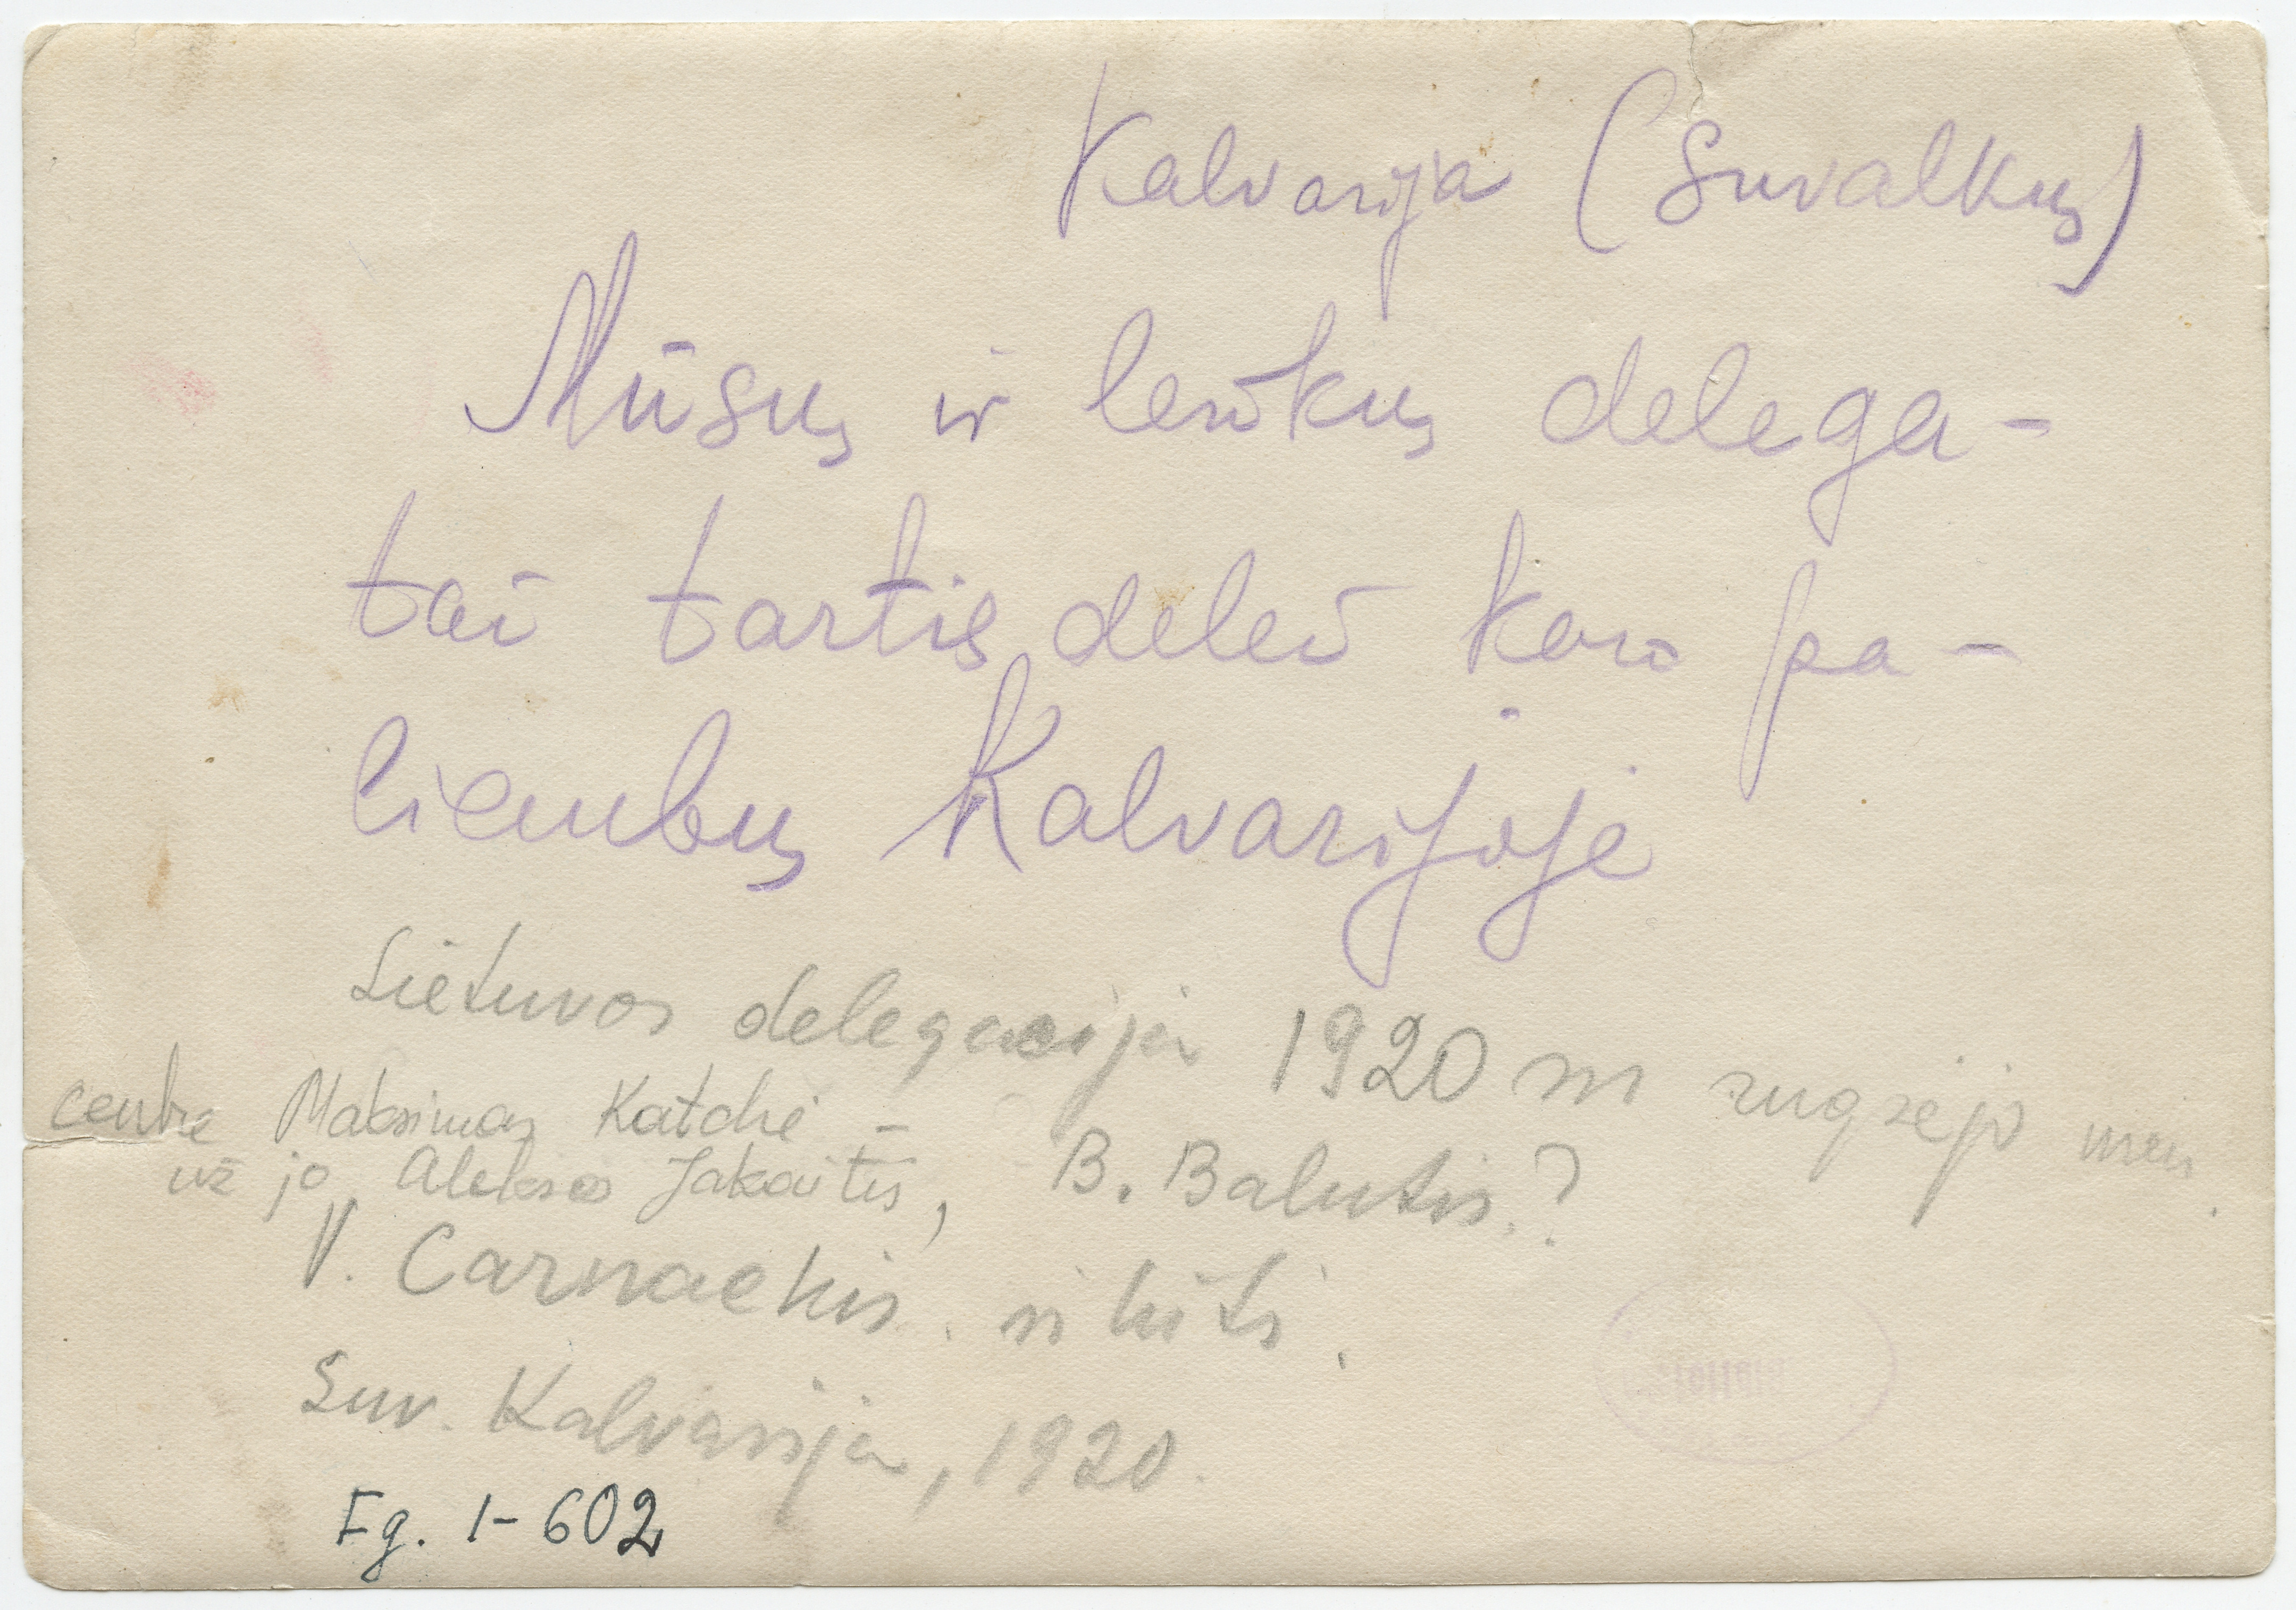 Kalvarija (Suvalkų)
Mūsų ir lenkų delega-
tai tartis delei karo pa-
liaubų Kalvarijoje
Lietuvos delegacija 1920 m rugsėjo mėn.
centre Maksimas Katchė –
už jo, Aleksas Jakaitis, B. Balutis.?
V. Čarneckis. ir kiti.
Suv. Kalvarija, 1920.
Fg. 1-602